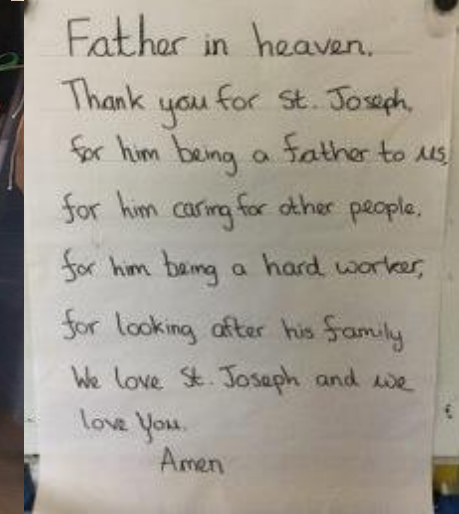 Father in heaven.
Thank you for St. Joseph,
for him being a father to us,
for him caring for other people,
for him being a hard worker,
for looking after his family
We love St. Joseph and we
love You.
Amen